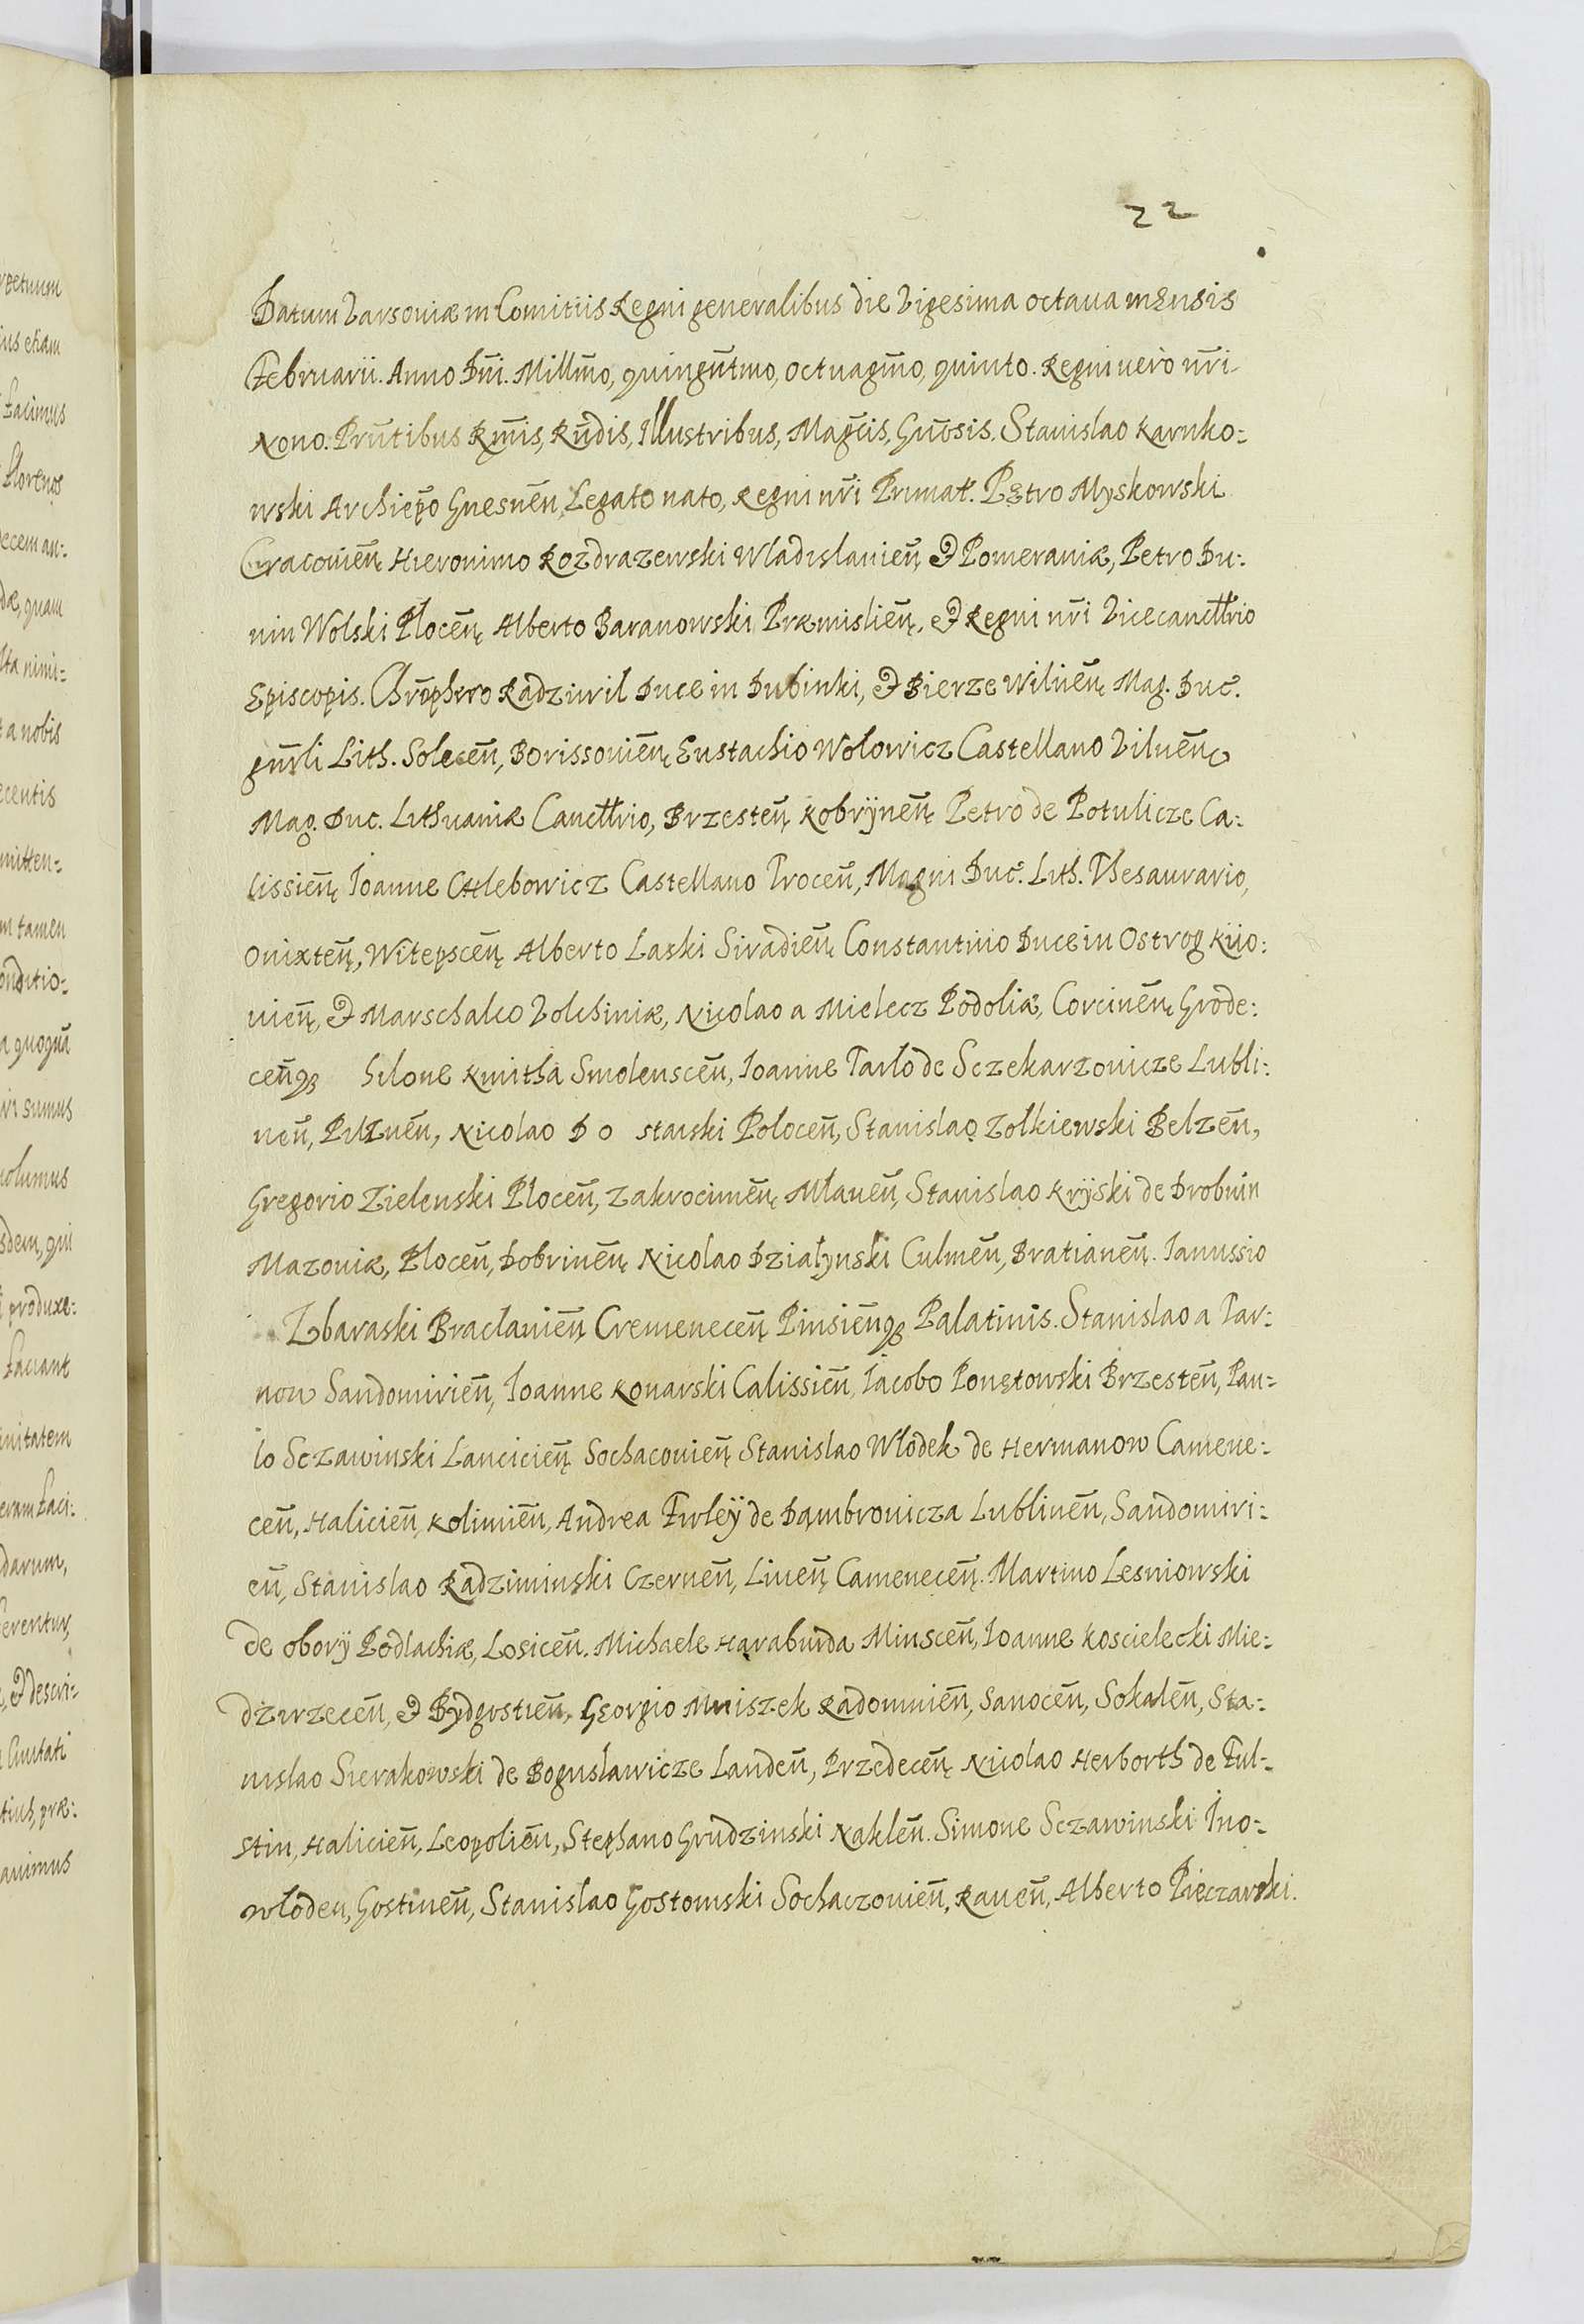 22
Datum Varsoviæ in Comitiis Regni generalibus die Vigesima octaua mensis
Februarii. Anno Dñi. Millm̃o, quingñtmo, octuagm̃o, quinto. Regni uerò nr̃i
Nono. Prñtibus Rm̃is, Rñdis, Illustribus, Mag̃cis, Gñosis. Stanislao Karnko=
wski Archiepõ Gnesneñ, Legato nato, Regni nr̃i Primat̃. Petro Myskowski
Cracouieñ, Hieronimo Rozdrazewski Wladislauieñ, & Pomeraniæ, Petro Du=
nin Wolski Ploceñ, Alberto Baranowski Præmislieñ, & Regni nr̃i Vicecancllrio
Episcopis. Chrõphero Radziwil Duce in Dubinki, & Bierze Wilneñ, Mag. Duc̃.
gñrli Lith. Soleceñ, Borissouieñ, Eustachio Wolowicz Castellano Vilneñ,
Mag. Duc. Lithuaniæ Cancllrio, Brzesteñ, Kobrÿneñ, Petro de Potulicze Ca=
lissieñ, Ioanne Chlebowicz Castellano Troceñ, Magni Duc̃. Lith. Thesaurario,
Onixteñ, Witepsceñ, Alberto Laski Siradieñ, Constantino Duce in Ostrog Kijo=
uieñ, & Marschalco Volhiniæ, Nicolao a Mielecz Podoliæ, Corcineñ, Grode=
ceñq3 hilone Kmitha Smolensceñ, Ioanne Tarlo de Sczekarzouicze Lubli=
neñ, Pilzneñ, Nicolao Do staiski Poloceñ, Stanislao Zolkiewski Belzeñ,
Gregorio Zielenski Ploceñ, Zakrocimeñ, Mlaueñ, Stanislao Krÿski de Drobnin
Mazouiæ, Ploceñ, Dobrineñ, Nicolao Dzialynski Culmeñ, Bratianeñ. Ianussio
Zbaraski Braclauieñ, Cremeneceñ, Pinsieñq3 Palatinis. Stanislao a Tar=
now Sandomirieñ, Ioanne Konarski Calissieñ, Iacobo Ponętowski Brzesteñ, Pau=
lo Sczawinski Lancicieñ, Sochacouieñ, Stanislao Wlodek de Hermanow Camene=
ceñ, Halicieñ, Kolimieñ, Andrea Firlëy de Dąmbrouicza Lublineñ, Sandomiri=
eñ, Stanislao Radziminski Czerneñ, Liueñ, Cameneceñ. Martino Lesniowski
de oborÿ Podlachiæ, Losiceñ. Michaele Haraburda Minsceñ, Ioanne Koscielecki Mie=
dzirzeceñ, & Bydgostieñ, Georgio Mniszek Radomieñ, Sanoceñ, Sokaleñ, Sta=
nislao Sierakowski de Boguslawicze Landeñ, Przedeceñ, Nicolao Herborth de Ful=
stin, Halicieñ, Leopolieñ, Stephano Grudzinski Nakleñ. Simone Sczawinski Ino=
wloden, Gostineñ, Stanislao Gostomski Sochaczouieñ, Raueñ, Alberto Pieczarski.